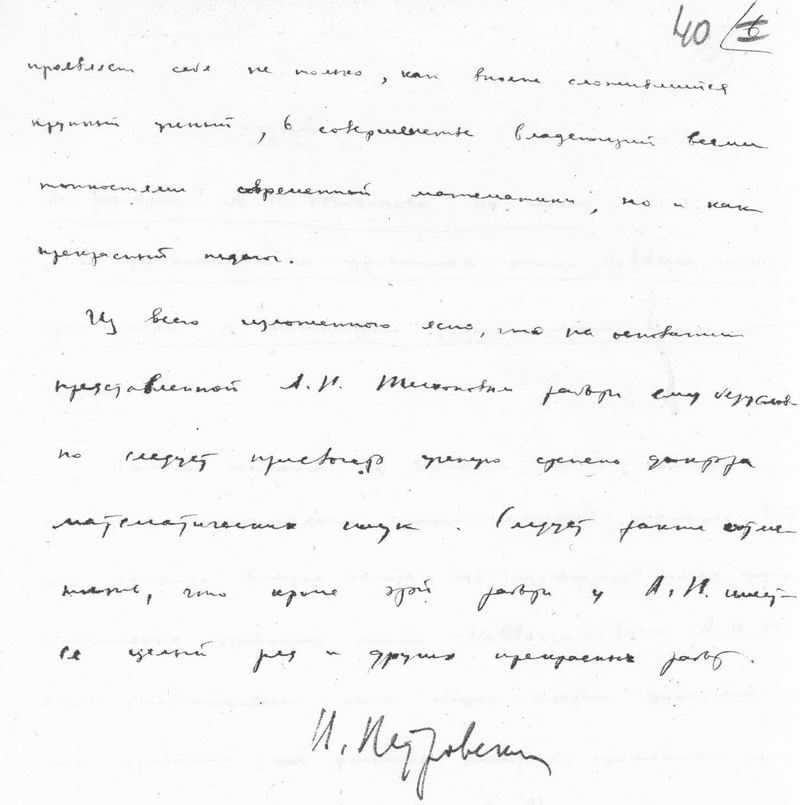 40 6
проявляет себя не только, как вполне сложившийся
крупный ученый, в совершенстве владеющий всеми
тонкостями современной математики, но и как
прекрасный педагог.
Из всего изложенного ясно, что на основании
представленной А.Н. Тихоновым работы ему безуслов-
но следует присвоить ученую степень доктора
математических наук. Следует также отме-
тить, что кроме этой работы у А.Н. имеет-
ся целый ряд и других прекрасных работ.
И. Петровский